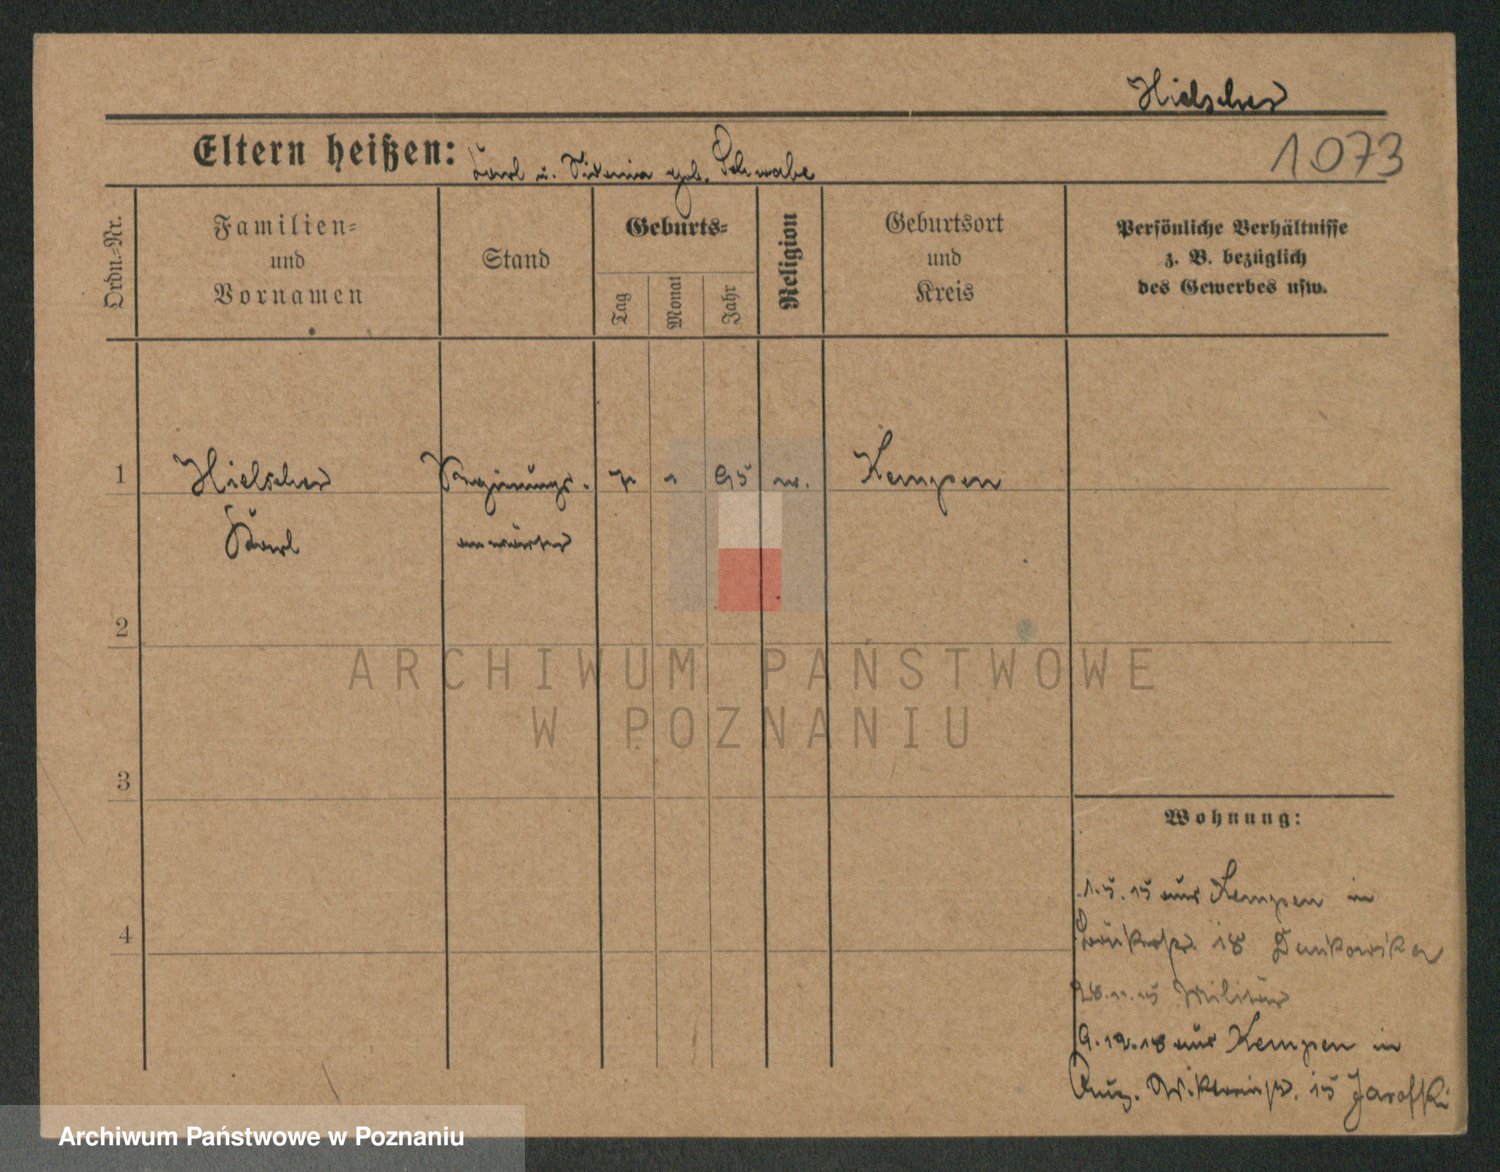 Hielscher
Eltern heißen: Karl u. geb. Schwabe
1073
Ordn.-Nr.
Familien-
und
Vornamen
Stand
Geburts-
Tag
Monat
Jahr
Religion
Geburtsort
und
Kreis
Persönliche Verhältnisse
z. B. bezüglich
des Gewerbes usw.
1 Hielscher Regierungs- 1 95 Kempen
Karl anwärter
2
ARCHIWUM PAŃSTWOWE
W POZNANIU
3
Wohnung:
1.5.15 aus Kempen in
4
18
Militär
9.12.18 aus Kempen in
Aug. Viktoriastr. 15 Jarofki
Archiwum Państwowe w Poznaniu